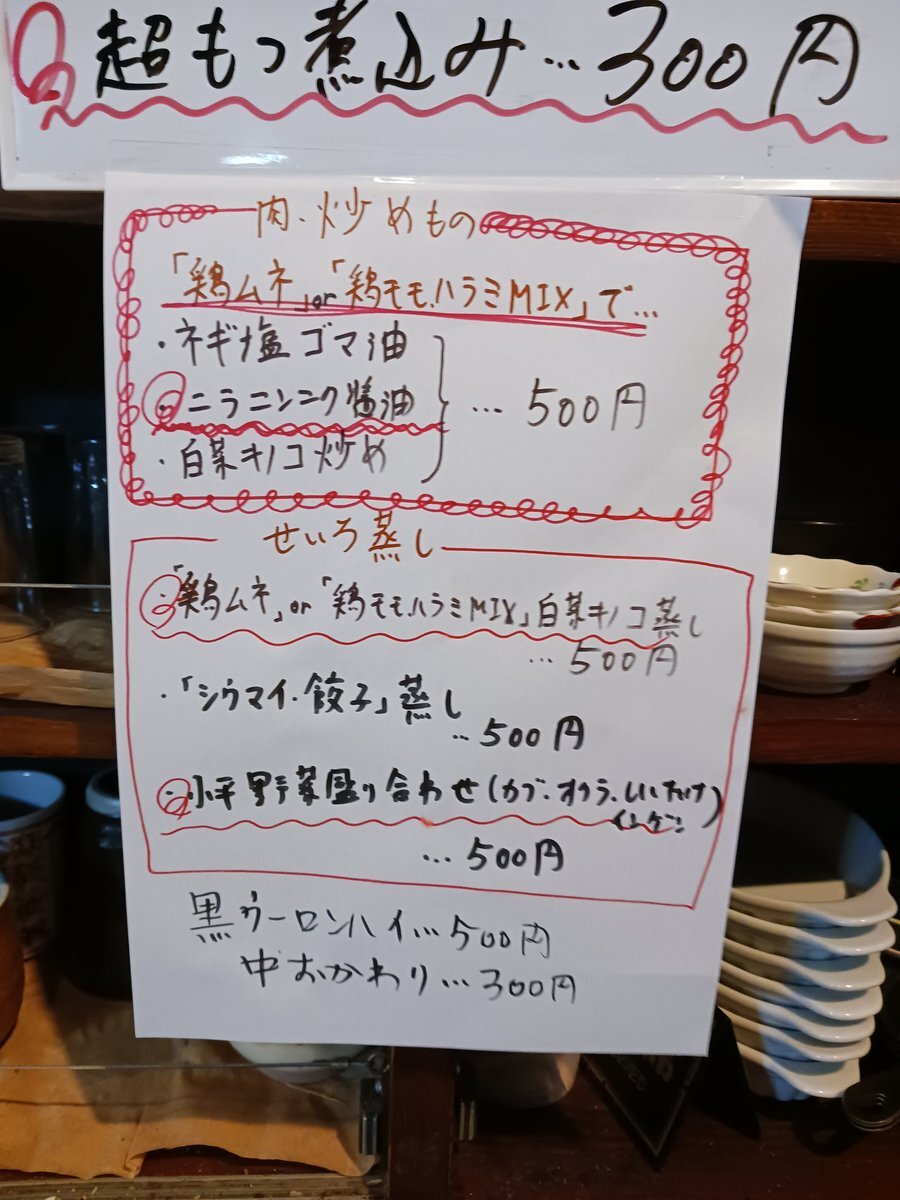 超もつ煮込み…300円
肉・炒めもの
「鶏ムネ」or「鶏モモ・ハラミMIX」で…
・ネギ塩ゴマ油
・ニラニンニク醬油
・白菜キノコ炒め
…500円
せいろ蒸し
・「鶏ムネ」or「鶏モモハラミMIX」白菜キノコ蒸し
…500円
・「シウマイ・餃子」蒸し
…500円
・小平野菜盛り合わせ(カブ・オクラ・しいたけ
インゲン)
…500円
黒ウーロンハイ…500円
中おかわり…300円